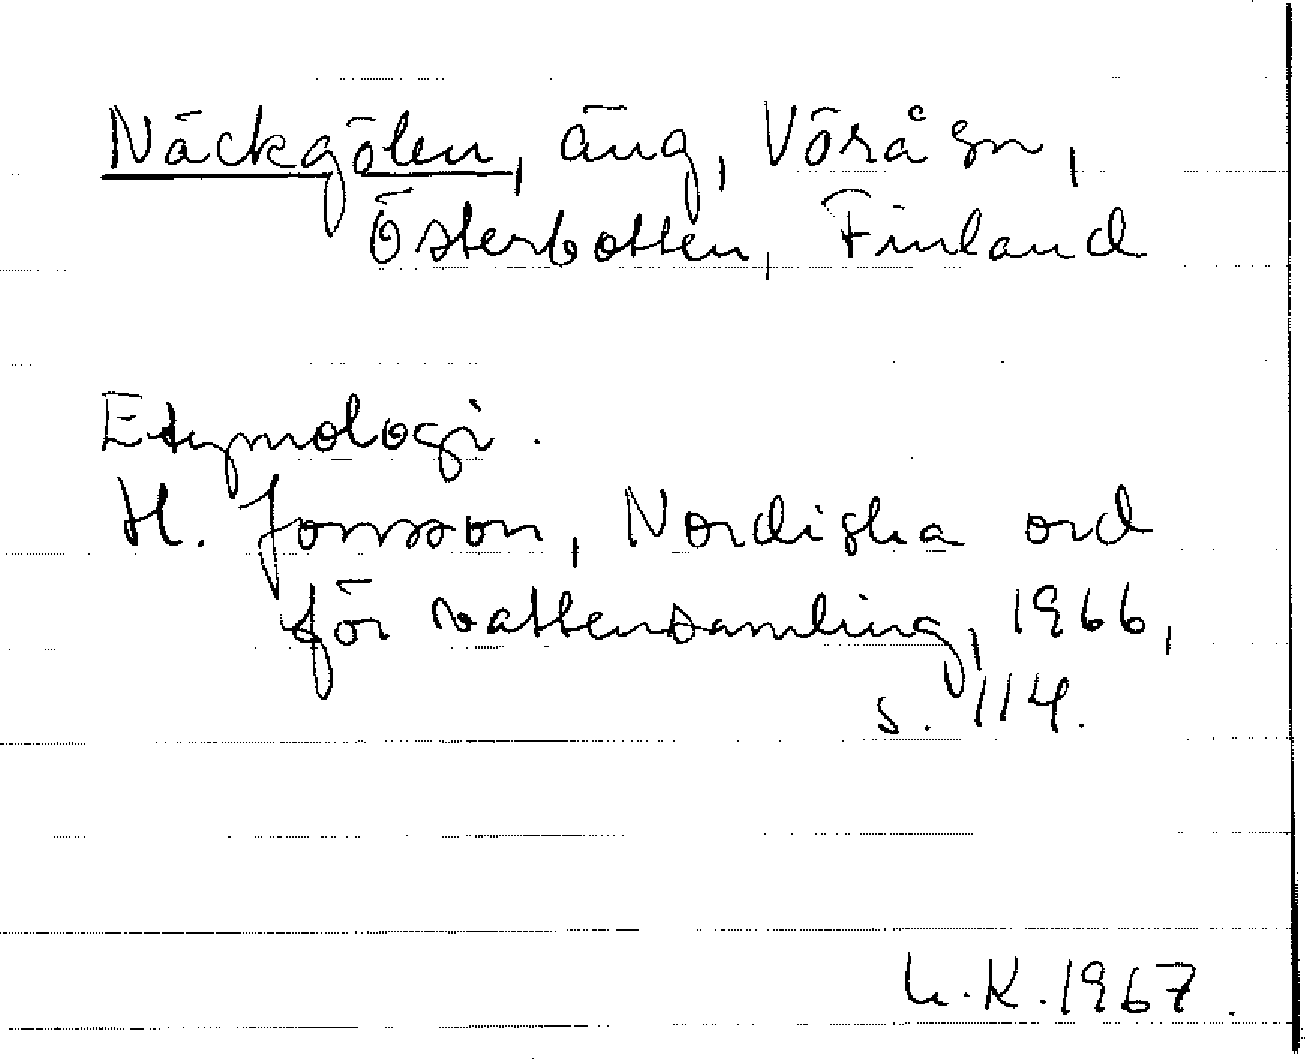 Näckgölen, äng, Vörå sn,
Österbotten, Finland
Etymologi.
H. Jonsson, Nordiska ord
för vattensamling, 1966,
s. 114.
L.K. 1967.